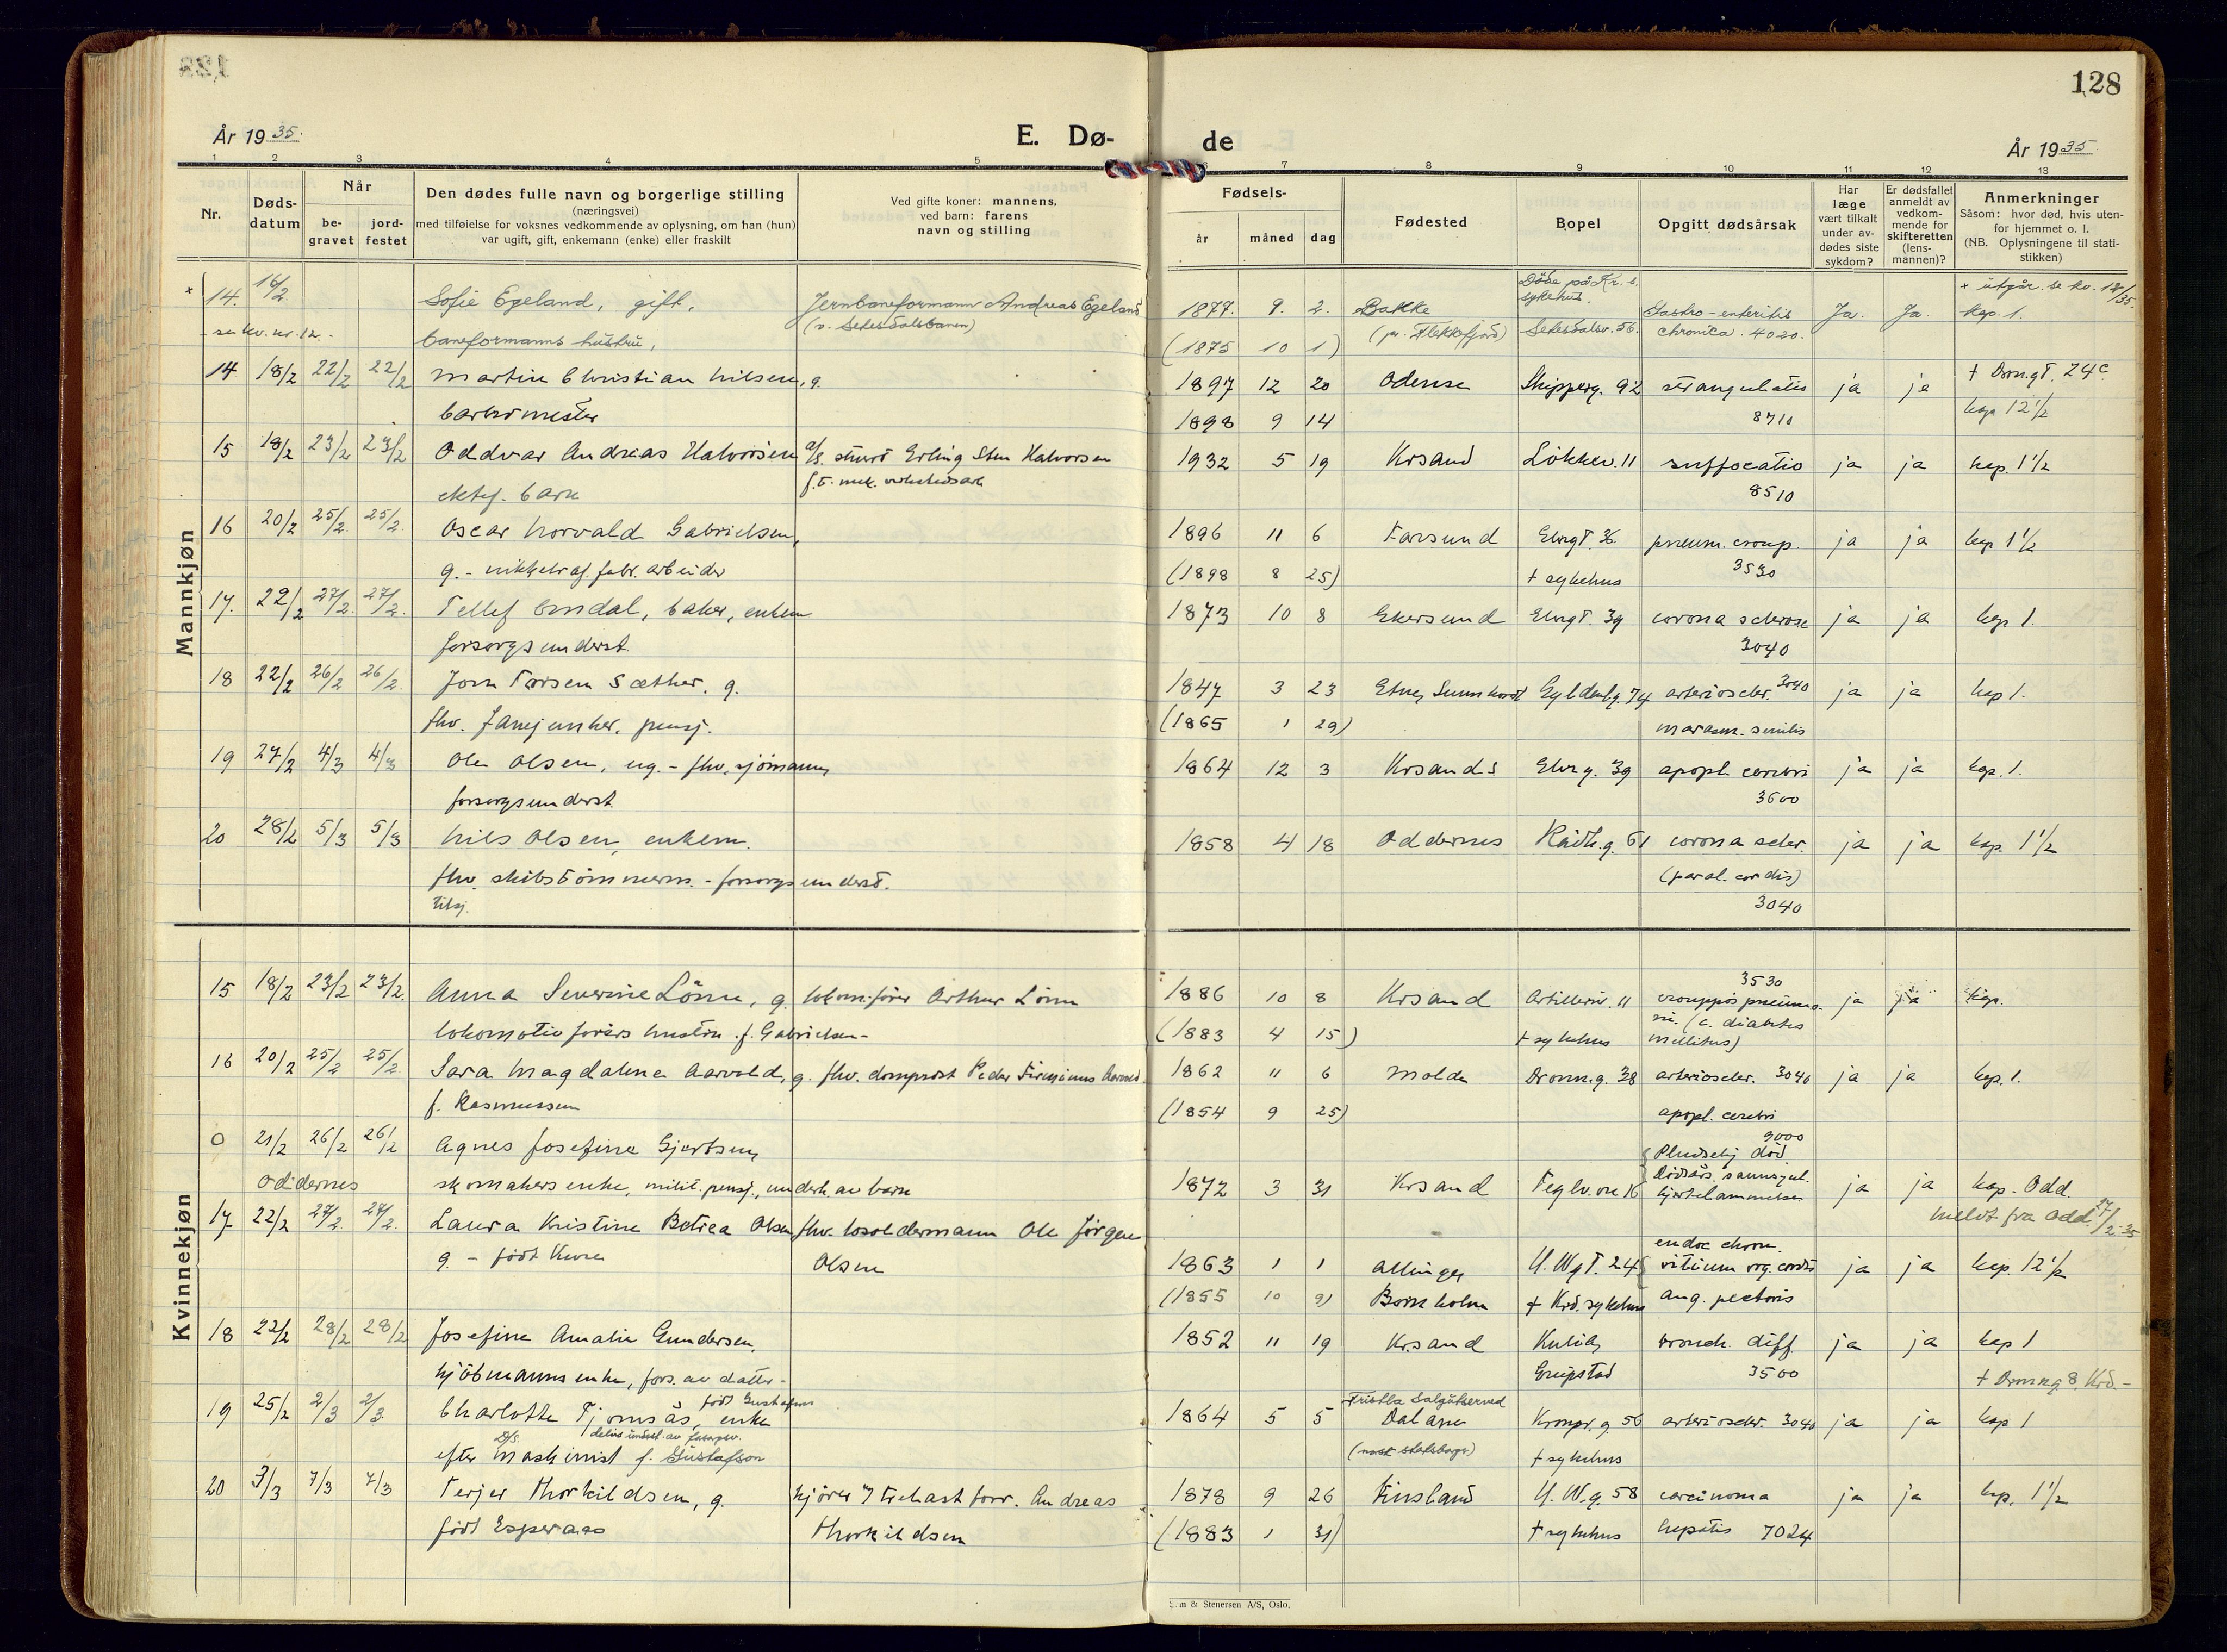 128
År 1935.
E. Dø-
de
År 1935.
1 2 3 4 5 6 7 8 9 10 11 12 13
Nr.
Døds-
datum
Når
be-
gravet
jord-
festet
Den dødes fulle navn og borgerlige stilling
(næringsvei)
med tilføielse for voksnes vedkommende av oplysning, om han (hun)
var ugift, gift, enkemann (enke) eller fraskilt
Ved gifte koner: mannens,
ved barn: farens
navn og stilling
Fødsels-
år måned dag
Fødested
Bopel
Opgitt dødsårsak
Har
læge
vært tilkalt
under av-
dødes siste
sykdom?
Er dødsfallet
anmeldt av
vedkom-
mende for
skifteretten
(lens-
mannen)?
Anmerkninger
Såsom: hvor død, hvis uten-
for hjemmet o. l.
(NB. Oplysningene til stati-
stikken)
Mannkjøn
+ 14. 16/2. Sofie Egeland, gift. Jernbaneformann Andreas Egeland 1877. 9. 2. Bakke Døde på Kr. s. sykehus. Gastro-enteritis Ja. Ja. + utgår. se kv. 12/35.
- se kv. nr. 12. - baneformanns hustru, (v. Setesdalsbanen) (1875 10 1) (pr. Flekkefjord) Setesdalsv. 56. chronica. 4020. kap. 1.
14 18/2 22/2 22/2 Martin Christian Nilsen, g. 1897 12 20 Odense Skipperg. 92 strangulatio ja ja + Dron.gt. 24c
barbermester 1898 9 14 8710 kap 12 1/2
15 18/2 23/2 23/2 Oddvar Andreas Halvorsen Erling Sten Halvorsen 1932 5 19 Krsand Løkkev. 11 suffocatio ja ja kap. 1 1/2
ektef. barn f.t. mek. verkstedsarb 8510
16 20/2 25/2. 25/2. Oscar Norvald Gabrielsen, 1896 11 6 Farsund Elvegt. 36 pneum. croup. ja ja kap 1 1/2
g. - nikkelraf. fabr. arbeider (1898 8 25) + sykehus 3530
17. 22/2 27/2. 27/2. Tellef Omdal, baker, enkem 1873 10 8 Ekersund Elvegt. 39 corona sclerose ja ja kap 1.
forsorgsunderst. 3040
18 22/2 26/2 26/2. Jørn Torsen Sæther, g. 1847 3 23 Etne, Sunnhordl Gyldenl.g. 74 arterioscler. 3040 ja ja kap 1.
fhv. fanejunker, pensj. (1865 1 29) marasm. senilis
19 27/2 4/3 4/3 Ole Olsen, ug. - fhv. sjømann, 1864 12 3 Krsand S Elveg. 39 apopl. cerebri ja ja kap. 1.
forsorgsunderst 3600
20 28/2 5/3 5/3 Nils Olsen, enkem. 1858 4 18 Oddernes Rådh.g. 61 corona scler. ja ja kap. 1 1/2
fhv. skibstømmerm. - forsorgsunderst. (paral. cordis)
3040
Kvinnekjøn
15 18/2 23/2 23/2. Anna Severine Lönn, g. lokom.fører Arthur Lönn 1886 10 8 Krsand Artilleriv. 11 3530 crouppøs pneumo- ja ja kap.
lokomotivførers hustru. f. Gabrielsen - (1883 4 15) + sykehus ni. (c. diabetes mellitus)
16 20/2 25/2 25/2. Sara Magdalena Aarvold, g. fhv. domprost Peder Firminus Aarvold 1862 11 6 Molde Dronn.g. 38 arterioscler. 3040 ja ja kap. 1.
f. Rasmussen (1854 9 25) apopl. cerebri
0 21/2 26/2 26/2 Agnes Josefine Gjertsen, 9000 Pludselig død
Oddernes skomakers enke, milit. pensj., underh. av barn 1872 3 31 Krsand Teglv.vn 16 Dødsårs. sannsynl. hjertelammelse ja ja kap. Odd.
meldt fra Odd. 27/2. 35
17. 22/2 27/2. 27/2. Laura Kristine Betzea Olsen fhv. losoldermann Ole Jørgen endoc chron.
g. - født Olsen 1863 1 1 Allinge, V. Wgt. 24 vitium org. cordis ja ja kap. 12 1/2
(1855 10 9) Bornholm + Krd. sykehus ang. pectoris
18 22/2 28/2 28/2 Josefine Amalie Gundersen, 1852 11 19 Kr.sand Kulia, bronch. diff. ja ja kap 1
kjøbmanns enke, fors. av datter - Greipstad 3500 + Dronng 8, Krd. -
19 25/2 2/3 2/3 Charlotte Tjomsås, enke født Gustafson 1864 5 5 Dalane Kronpr.g. 56 arterioscler. 3040 ja ja kap 1
efter D/S maskinist f. Gustafson + sykehus
20 3/3 7/3 7/3 Terjer Thorkildsen, g. kjører Andreas 1878 9 26 Finsland V. W.g. 58 carcinoma ja ja kap. 1 1/2
født Esperaas Thorkildsen (1883 1 31) + sykehus hepatis 7024
Sem & Stenersen A/S, Oslo.